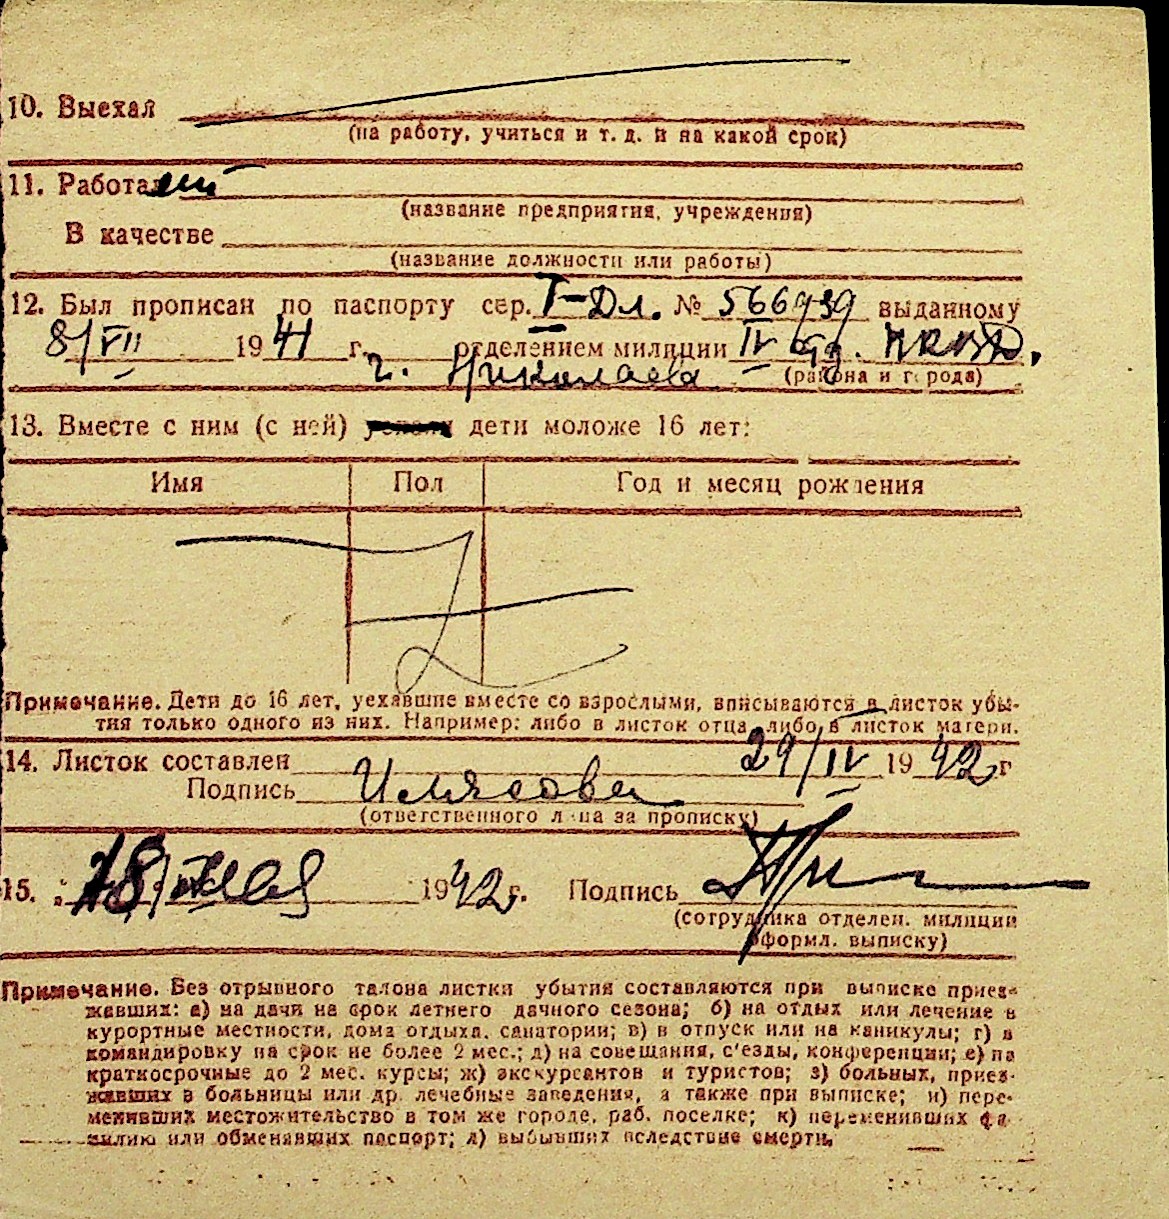 10. Выехал
(на работу, учиться и т. д. и на какой срок)
11. Работал
(название предприятия, учреждения)
В качестве
(название должности или работы)
12. Был прописан по паспорту сер. I-Дл. № 566939 выданному
8/VII 1941 г. отделением милиции IV отд. НКВД.
г. Николаева (района и города)
13. Вместе с ним (с ней) дети моложе 16 лет:
Имя Пол Год и месяц рождения
Z
Примечание. Дети до 16 лет, уехавшие вместе со взрослыми, вписываются в листок убы-
тия только одного из них. Например: либо в листок отца, либо в листок матери.
14. Листок составлен 29/IV 1942 г
Подпись Илясова
(ответственного лица за прописку)
15. 18 мая 1942 г. Подпись
(сотрудника отделен. милиции
оформл. выписку)
Примечание. Без отрывного талона листки убытия составляются при выписке приез-
жавших: а) на дачи на срок летнего дачного сезона; б) на отдых или лечение в
курортные местности, дома отдыха, санатории; в) в отпуск или на каникулы; г) в
командировку на срок не более 2 мес.; д) на совещания, с'езды, конференции; е) на
краткосрочные до 2 мес. курсы; ж) экскурсантов и туристов; з) больных, приез-
жавших в больницы или др. лечебные заведения, а также при выписке; и) пере-
менивших местожительство в том же городе, раб. поселке; к) переменивших фа-
милию или обменявших паспорт; л) выбывших вследствие смерти.